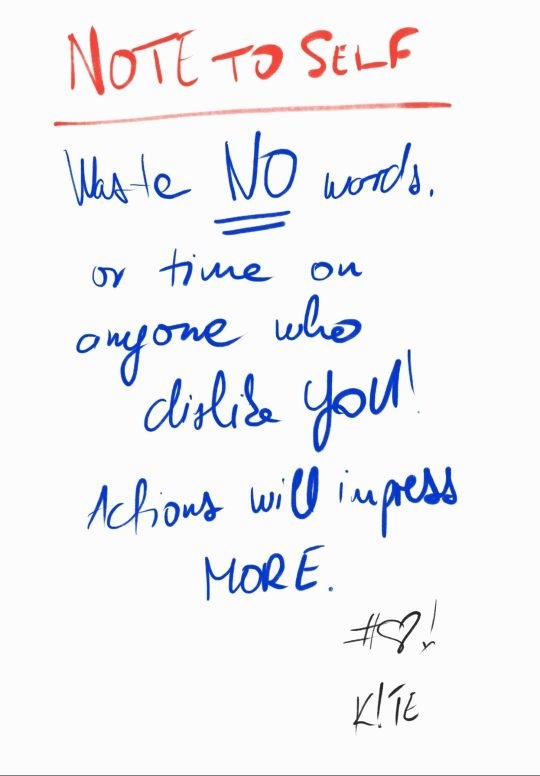 NOTE TO SELF
Waste NO words.
or time on
anyone who
dislike YOU!
Actions will impress
MORE.
#♡!
K!TE